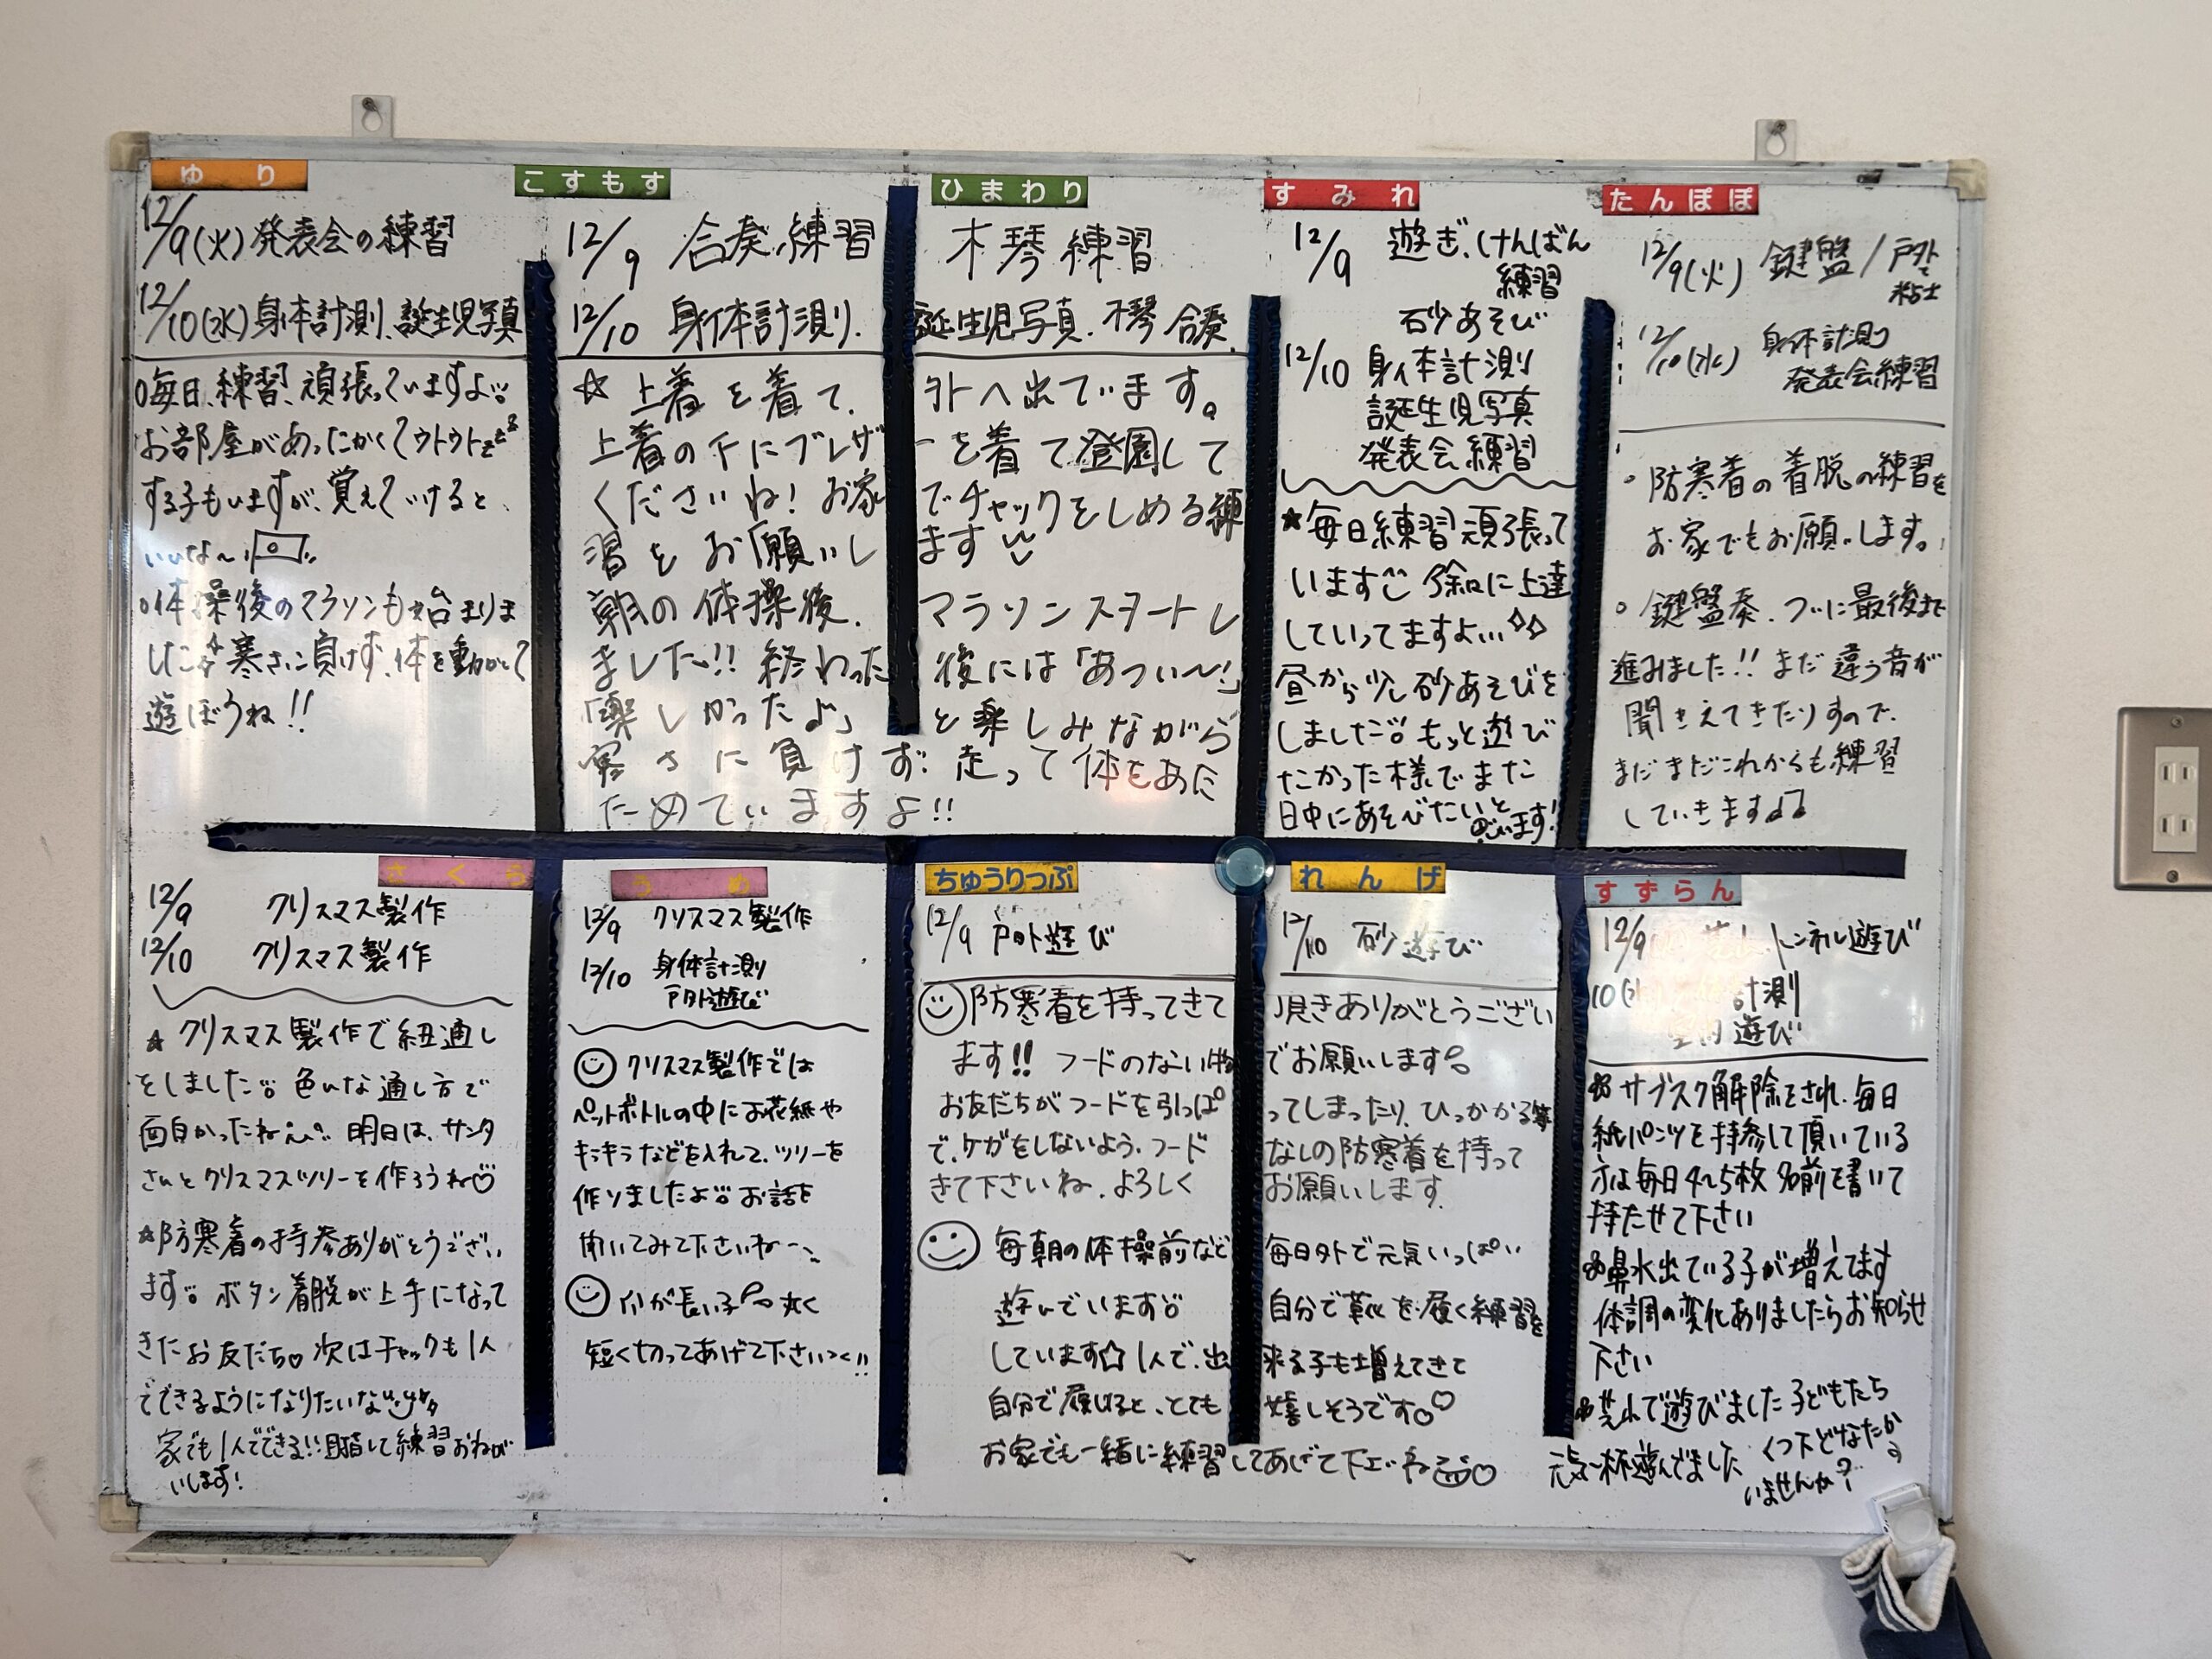 ゆり
12/9(火)発表会の練習
12/10(水)身体計測、誕生児写真
○毎日、練習、頑張っていますよ
お部屋があったかくてウトウトzzz
する子もいますが、覚えていけると、
いいな〜
○体操後のマラソンも始まりま
した 寒さに負けず、体を動かして
遊ぼうね!!
こすもす
ひまわり
12/9 合奏、練習 木琴練習
12/10 身体計測、誕生児写真、木琴 合奏、
☆上着を着て、外へ出ています。
上着の下にブレザーを着て登園して
くださいね! お家でチャックをしめる練
習をお願いします
朝の体操後、マラソンスタートし
ました!! 終わった後には「あつい〜!」
「楽しかったよ」と楽しみながら
寒さに負けず、走って体をあた
ためていますよ!!
すみれ
12/9 遊ぎ、けんばん
練習
砂あそび
12/10 身体計測
誕生児写真
発表会練習
★毎日練習頑張って
います 徐々に上達
していってますよ…
昼から少し砂あそびを
しました もっと遊び
たかった様でまた
日中にあそびたいと
思います!
たんぽぽ
12/9(火) 鍵盤/戸外で
粘土
12/10(水) 身体計測
発表会練習
・防寒着の着脱の練習を
お家でもお願いします。
○鍵盤奏、ついに最後まで
進みました!! まだ違う音が
聞こえてきたりするので、
まだまだこれからも練習
していきます♪♫
さくら
12/9 クリスマス製作
12/10 クリスマス製作
★クリスマス製作で紐通し
をしました 色々な通し方で
面白かったね 明日は、サンタ
さんとクリスマスツリーを作ろうね♡
☆防寒着の持参ありがとうござい
ます ボタン着脱が上手になって
きたお友だち 次はチャックも1人
でできるようになりたいな
家でも1人でできる!!目指して練習おねが
いします!
うめ
12/9 クリスマス製作
12/10 身体計測
戸外遊び
クリスマス製作では
ペットボトルの中にお花紙や
キラキラなどを入れて、ツリーを
作りましたよ お話を
聞いてみて下さいね〜
爪が長い子
短く切ってあげて下さい
ちゅうりっぷ
れんげ
12/9 戸外遊び 12/10 砂遊び
防寒着を持ってきて頂きありがとうござい
ます!! フードのない物でお願いします
お友だちがフードを引っぱってしまったり、ひっかかる等
で、ケガをしないよう、フードなしの防寒着を持って
きて下さいね、よろしくお願いします。
毎朝の体操前など毎日外で元気いっぱい
遊んでいます 自分で靴を履く練習を
しています☆ 1人で、出来る子も増えてきて
自分で履けると、とても嬉しそうです♡
お家でも一緒に練習してあげて下さいね♡
すずらん
12/9 トンネル遊び
10 計測
遊び
サブスク解除をされ、毎日
紙パンツを持参して頂いている
方は毎日4〜5枚 名前を書いて
持たせて下さい
鼻水出ている子が増えてます
体調の変化ありましたらお知らせ
下さい
芝山で遊びました 子どもたち
元気一杯遊んでました
くつ下どなたか
いませんか?